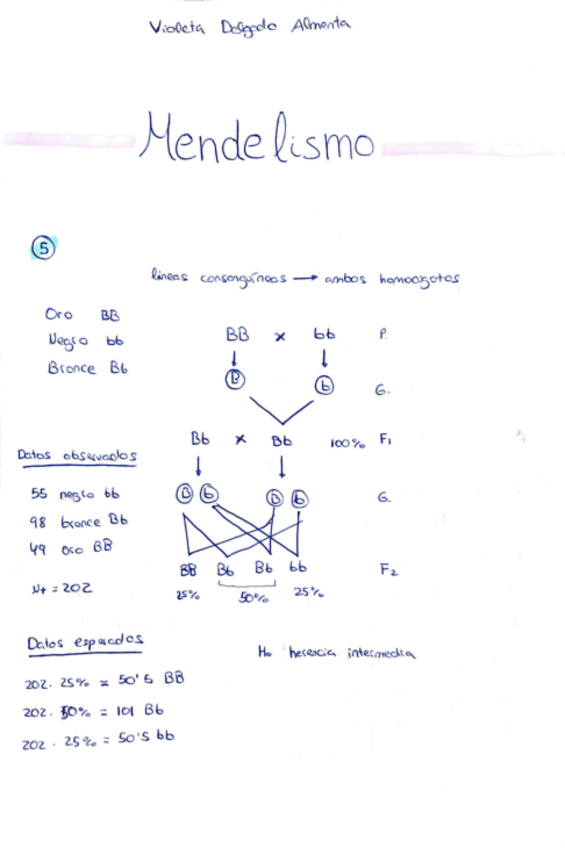 Violeta Delgado Almenta
Mendelismo
5
líneas consanguíneos → ambos homocigotos
Oro BB
Negro bb
Bronce Bb
BB x bb P.
B b G.
Bb x Bb 100% F1
Datos observados
B b B b G.
55 negro bb
98 bronce Bb
49 oro BB
BB Bb Bb bb F2
25% 50% 25%
Nt = 202
Datos esperados
Ho herencia intermedia
202. 25% = 50'5 BB
202. 50% = 101 Bb
202. 25% = 50'5 bb